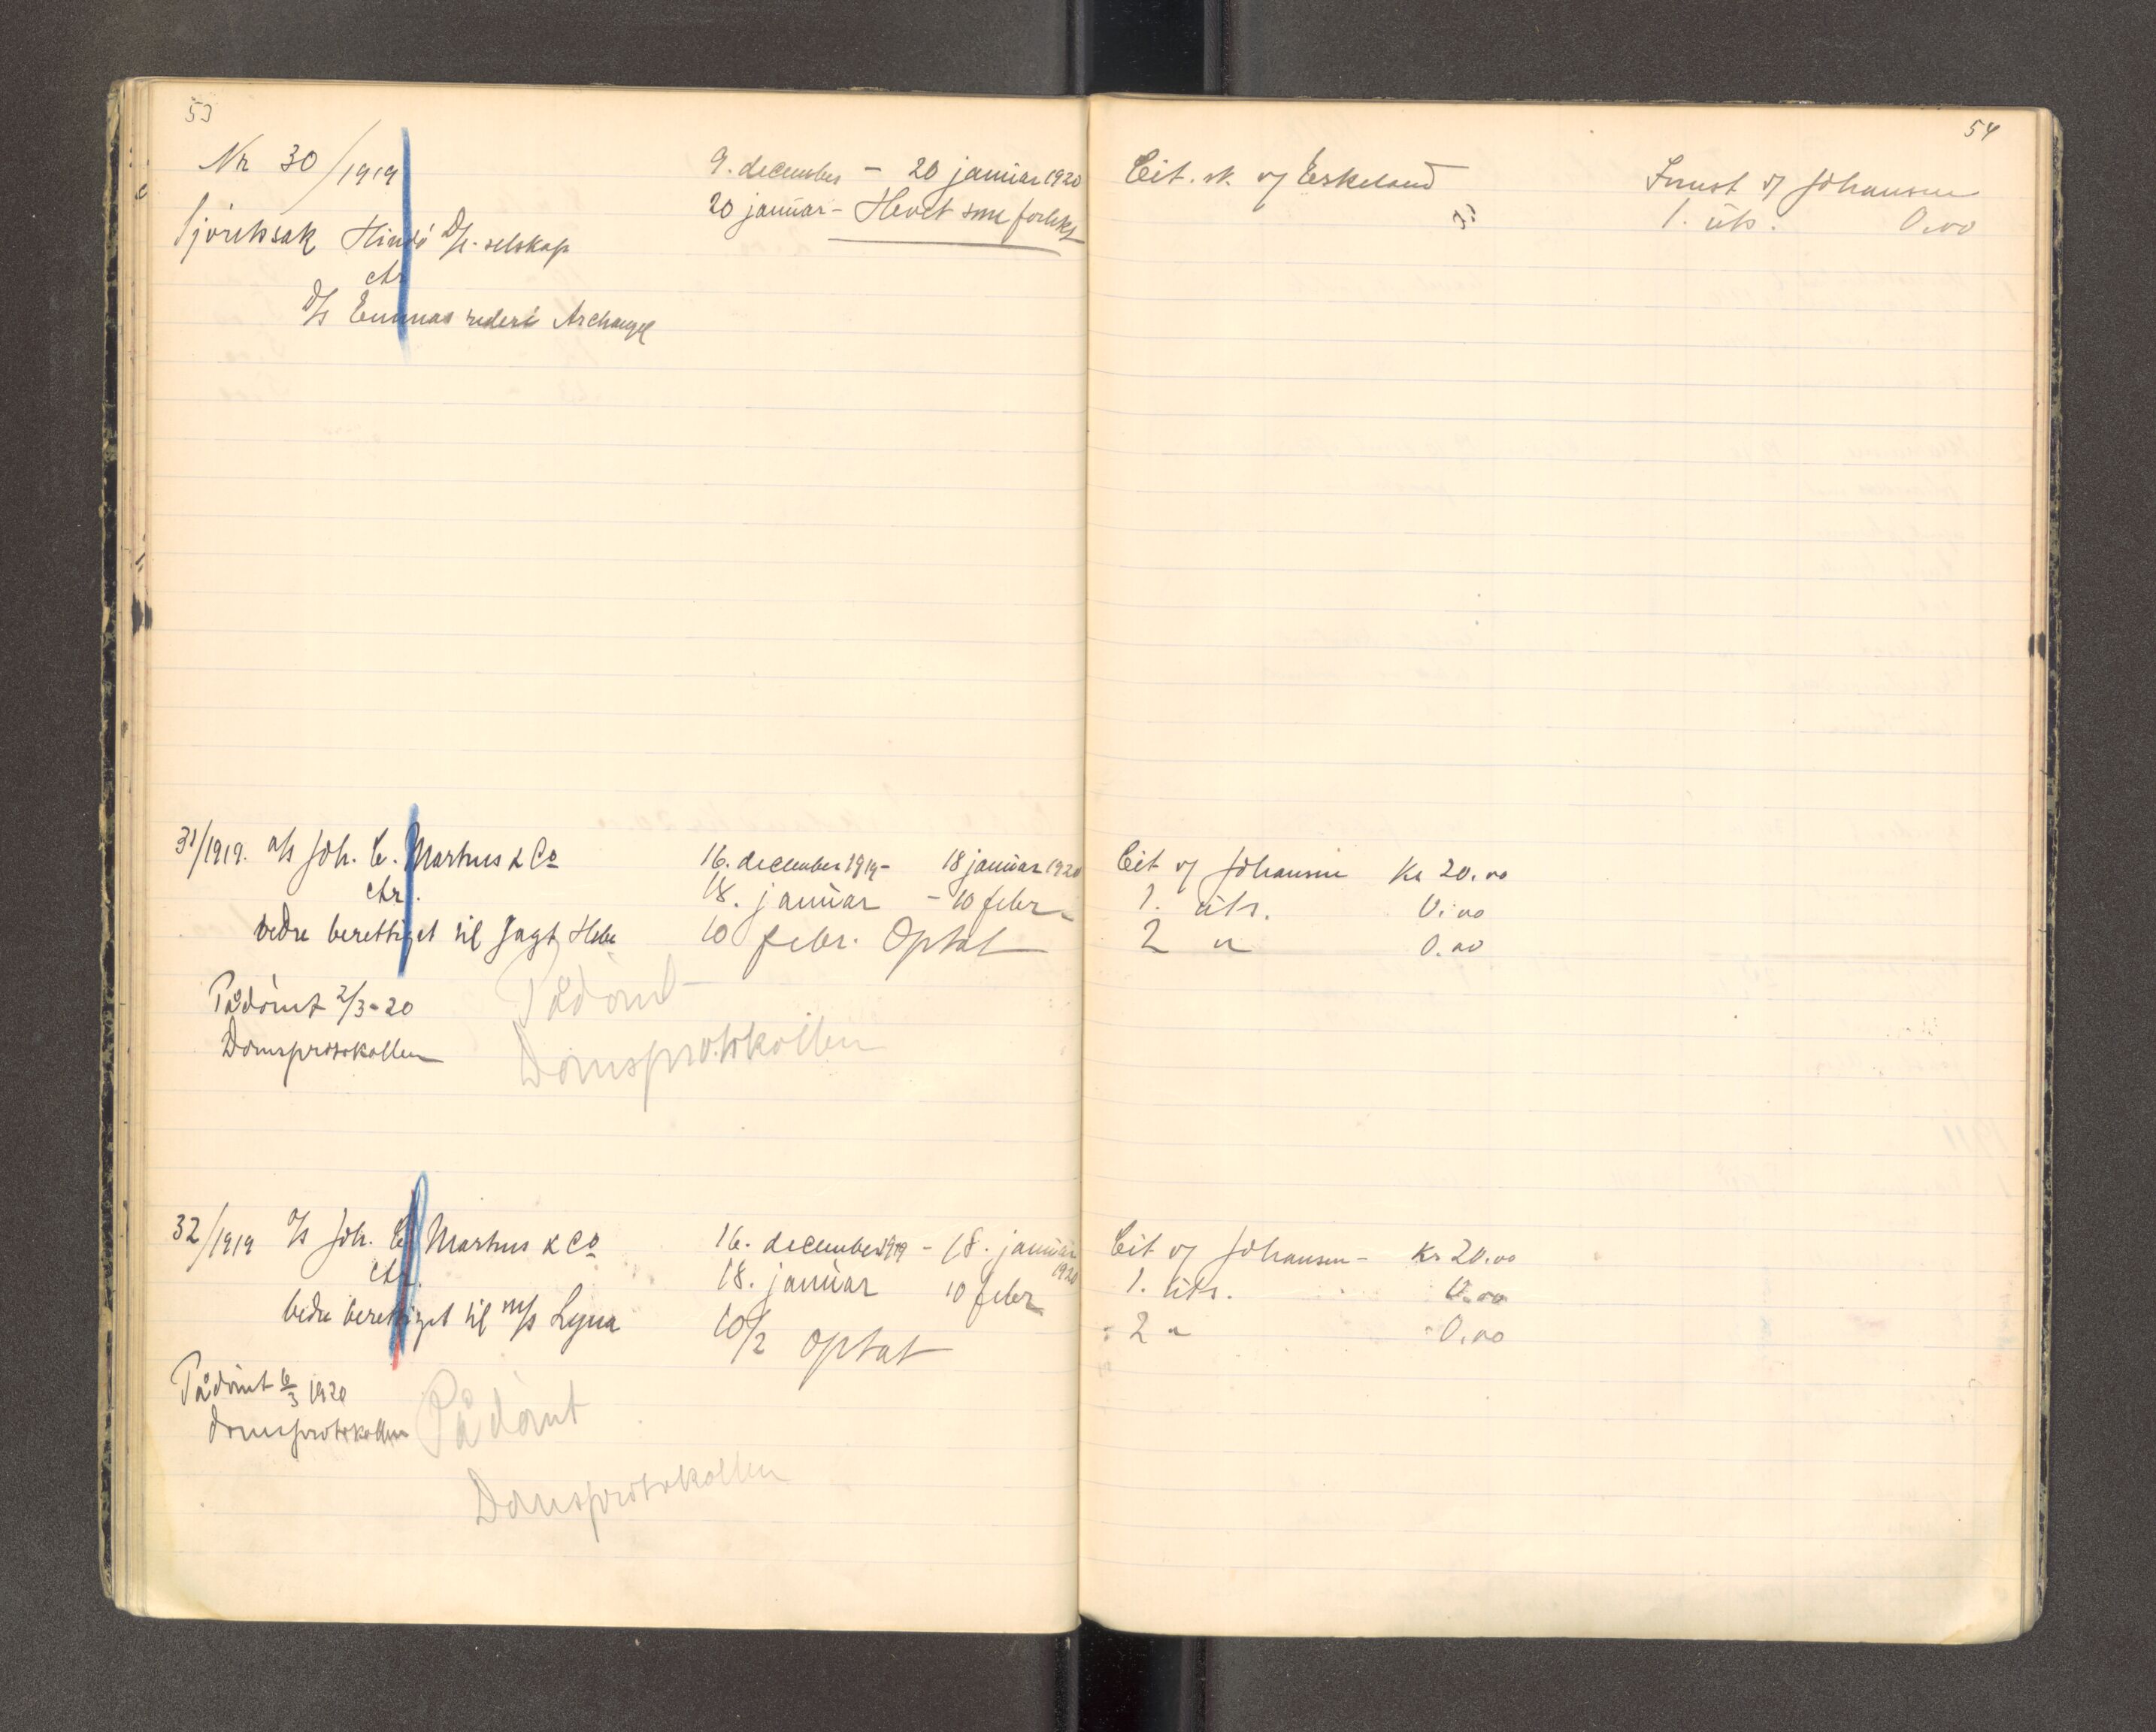 53
Nr 30/1919
Sjöretssak Hindö D/s. selskap
ctr
D/s Emmas rederi Archangel
9. december - 20 januar 1920
20 januar - Hevet som forlikt
31/1919. a/s Joh. E. Marhus & Co
ctr.
vedre berettiget til Jagt Hebe
16. december 1919 - 18 januar 1920
18. januar - 10 febr.
10 febr. Optat
Pådömt 2/3-20
Domsprotokollen
Pådömt
Domsprotokollen
32/1919 a/s Joh. E. Marhus & Co
ctr.
bedre berettiget til m/s Lyna
16. december 1919 - 18. januar 1920
18. januar 10 febr
10/2 Optat
Pådömt 6/3 1920
domsprotokollen
Pådömt
Domsprotokollen
54
Cit. v/ Eskeland
Innst v/ Johansen
1. uts. 0.00
Cit v/ Johansen Kr 20.00
1. uts. 0.00
2 " 0.00
Cit v/ Johansen - Kr 20.00
1. uts. 0.00
2 " 0.00